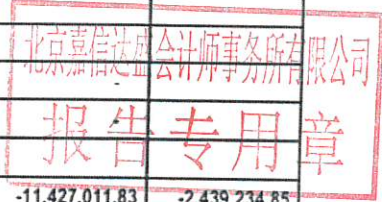 北京嘉信达盛会计师事务所有限公司
报告专用章
-11,427,011.83 -2,439,234.85